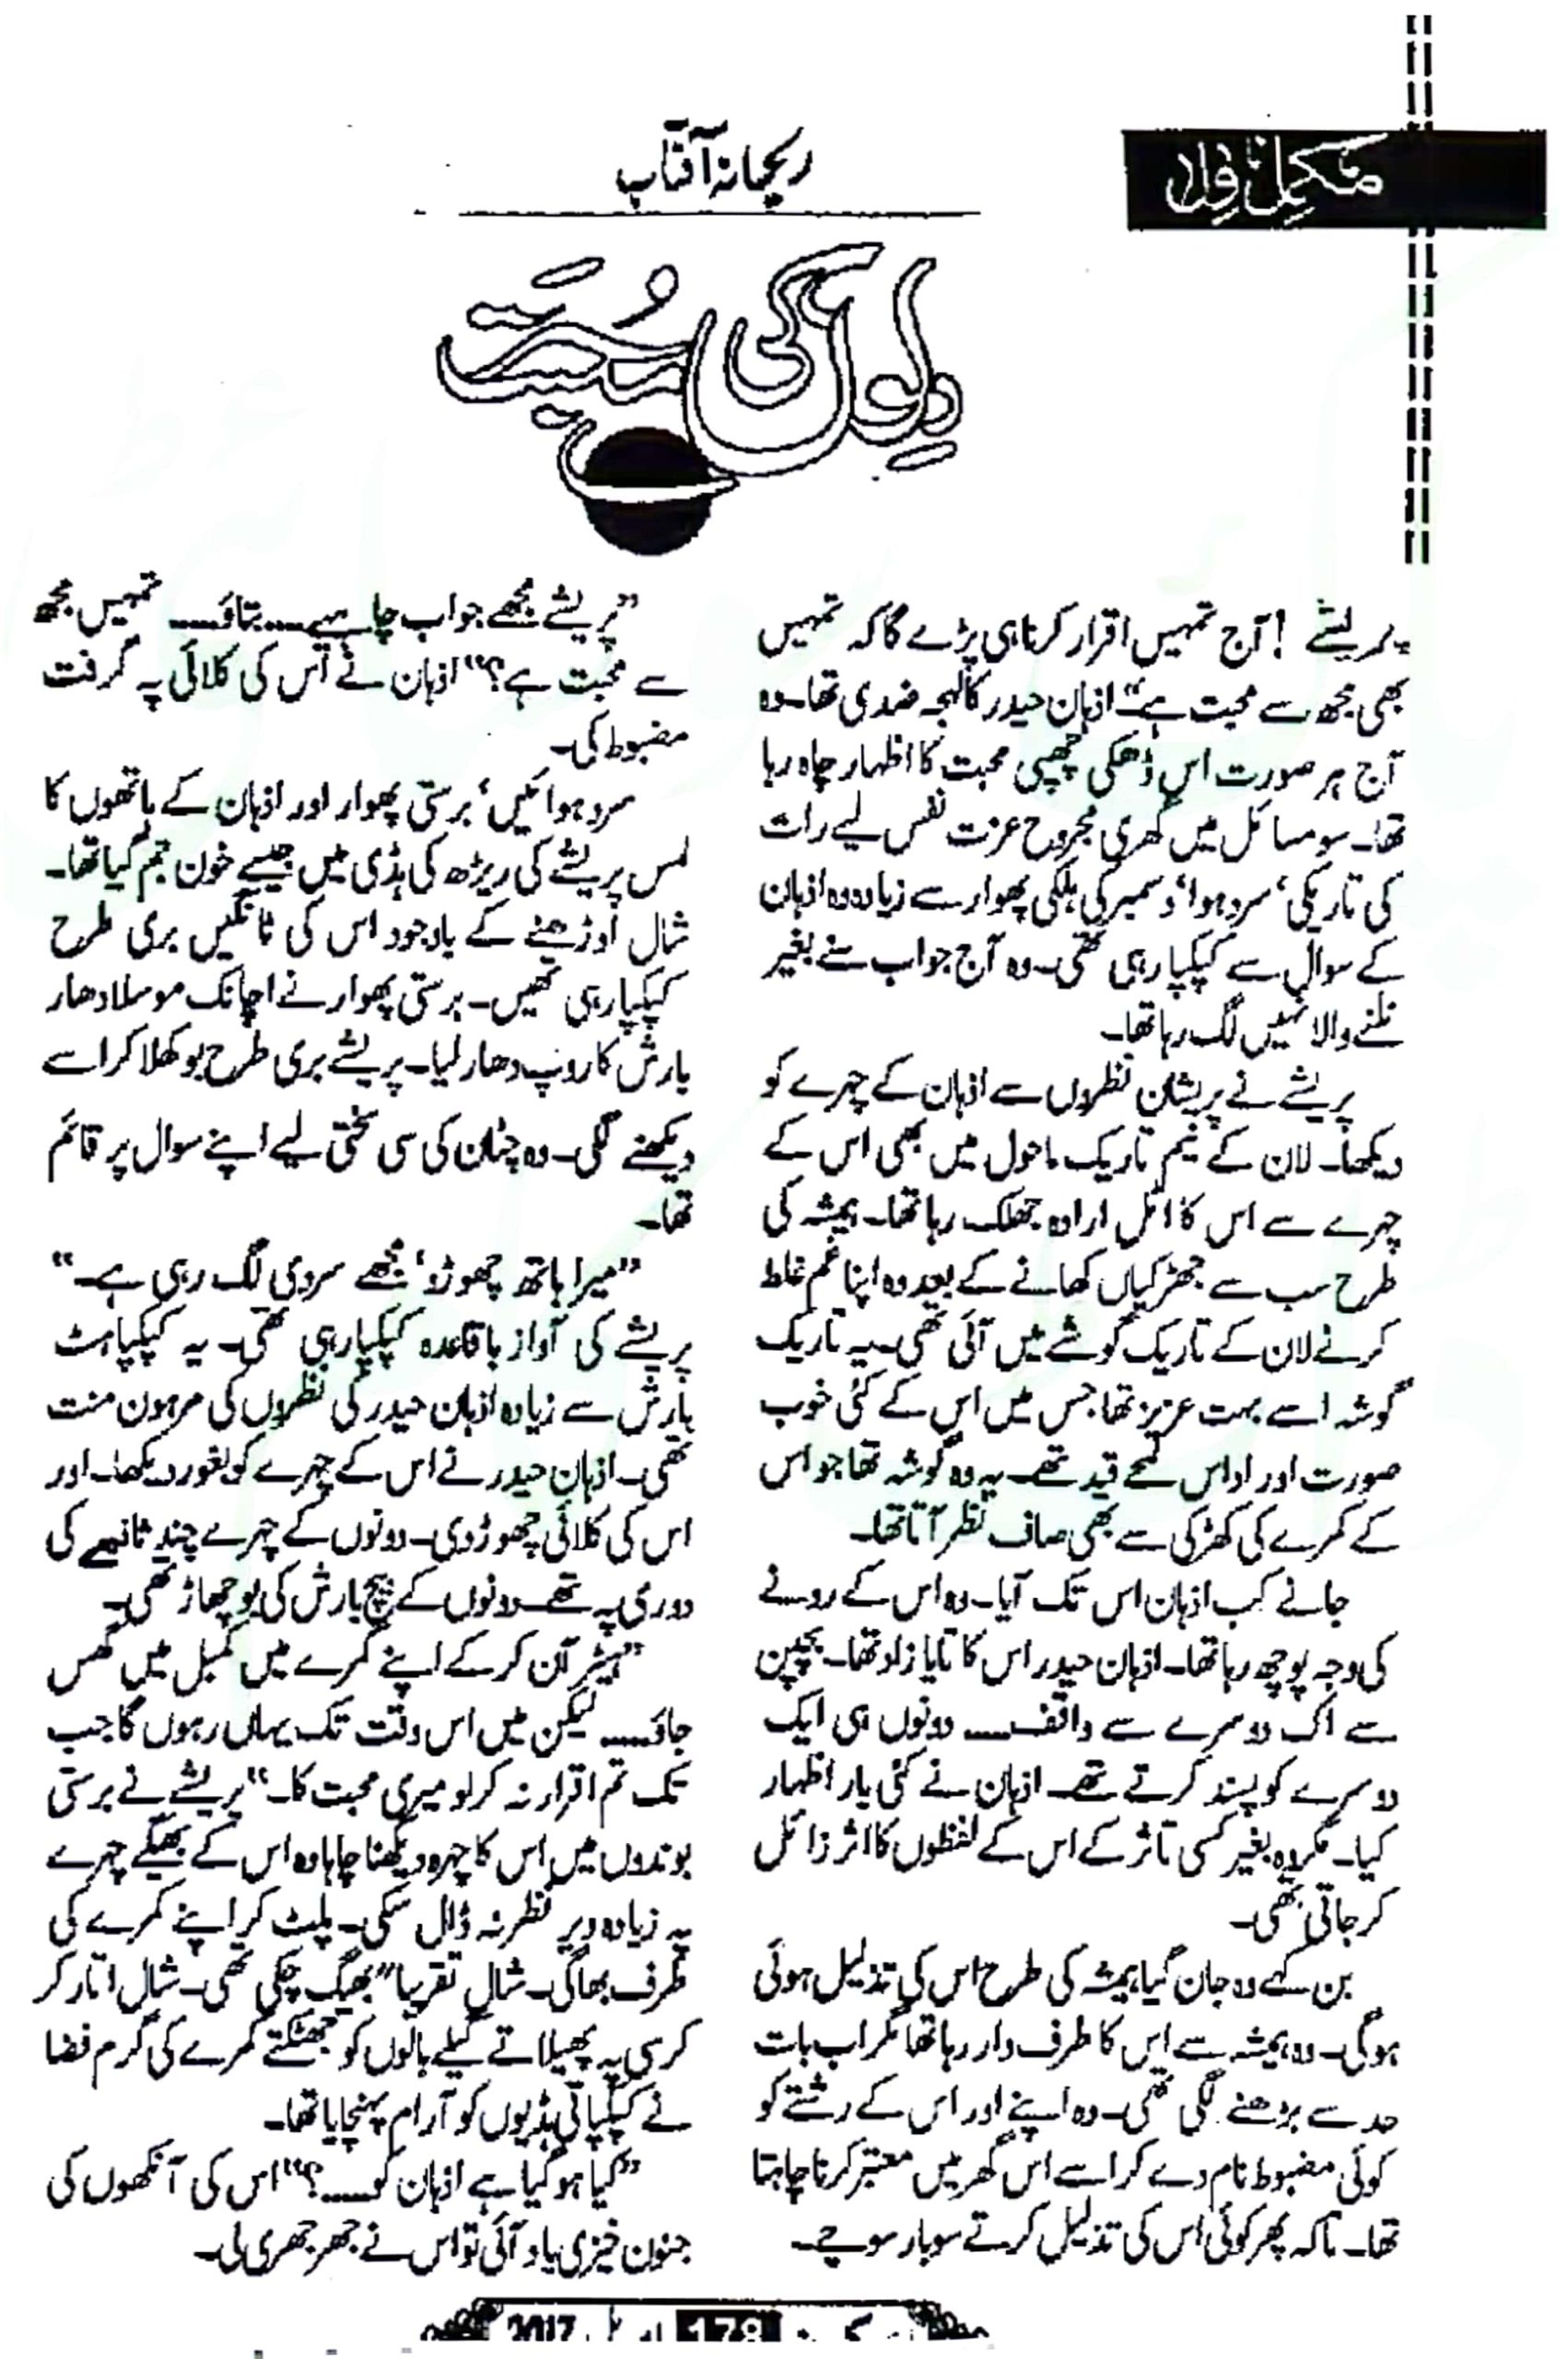 مکمل ناول
ریحانہ آفتاب
دلوں کی سیرت
پریشے! آج تمہیں اقرار کرنا ہی پڑے گا کہ تمہیں
بھی مجھ سے محبت ہے“ اذہان حیدر کا لہجہ ضدی تھا۔ وہ
آج ہر صورت اس ڈھکی چھپی محبت کا اظہار چاہ رہا
تھا۔ سو مسائل میں گھری مجروح عزت نفس لیے رات
کی تاریکی‘ سرد ہوا‘ دسمبر کی ہلکی پھوار سے زیادہ وہ اذہان
کے سوال سے کپکپا رہی تھی۔ وہ آج جواب سنے بغیر
ٹلنے والا نہیں لگ رہا تھا۔
پریشے نے پریشان نظروں سے اذہان کے چہرے کو
دیکھا۔ لان کے نیم تاریک ماحول میں بھی اس کے
چہرے سے اس کا اٹل ارادہ جھلک رہا تھا۔ ہمیشہ کی
طرح سب سے جھڑکیاں کھانے کے بعد وہ اپنا غم غلط
کرنے لان کے تاریک گوشے میں آئی تھی۔ یہ تاریک
گوشہ اسے بہت عزیز تھا جس میں اس کے کئی خوب
صورت اور اداس لمحے قید تھے۔ یہ وہ گوشہ تھا جو اس
کے کمرے کی کھڑکی سے بھی صاف نظر آتا تھا۔
جانے کب اذہان اس تک آیا۔ وہ اس کے رونے
کی وجہ پوچھ رہا تھا۔ اذہان حیدر اس کا تایا زاد تھا۔ بچپن
سے اک دوسرے سے واقف..... دونوں ہی ایک
دوسرے کو پسند کرتے تھے۔ اذہان نے کئی بار اظہار
کیا۔ مگر وہ بغیر کسی تاثر کے اس کے لفظوں کا اثر زائل
کر جاتی تھی۔
بن کہے وہ جان گیا ہمیشہ کی طرح اس کی تذلیل ہوئی
ہوگی۔ وہ ہمیشہ سے اس کا طرف دار رہا تھا مگر اب بات
حد سے بڑھنے لگی تھی۔ وہ اپنے اور اس کے رشتے کو
کوئی مضبوط نام دے کر اسے اس گھر میں معتبر کرنا چاہتا
تھا۔ تاکہ پھر کوئی اس کی تذلیل کرتے سو بار سوچے۔
”پریشے مجھے جواب چاہیے..... بتاؤ..... تمہیں مجھ
سے محبت ہے؟“ اذہان نے اس کی کلائی پہ گرفت
مضبوط کی۔
سرد ہوائیں‘ برستی پھوار اور اذہان کے ہاتھوں کا
لمس پریشے کی ریڑھ کی ہڈی میں جیسے خون جم گیا تھا۔
شال اوڑھنے کے باوجود اس کی ٹانگیں بری طرح
کپکپا رہی تھیں۔ برستی پھوار نے اچانک موسلا دھار
بارش کا روپ دھار لیا۔ پریشے بری طرح بوکھلا کر اسے
دیکھنے لگی۔ وہ چٹان کی سی سختی لیے اپنے سوال پر قائم
تھا۔
”میرا ہاتھ چھوڑو‘ مجھے سردی لگ رہی ہے۔“
پریشے کی آواز باقاعدہ کپکپا رہی تھی۔ یہ کپکپاہٹ
بارش سے زیادہ اذہان حیدر کی نظروں کی مرہون منت
تھی۔ اذہان حیدر نے اس کے چہرے کو بغور دیکھا۔ اور
اس کی کلائی چھوڑ دی۔ دونوں کے چہرے چند ثانیے کی
دوری پہ تھے۔ دونوں کے بیچ بارش کی بوچھاڑ تھی۔
”ہیٹر آن کر کے اپنے کمرے میں کمبل میں گھس
جاؤ..... لیکن میں اس وقت تک یہاں رہوں گا جب
تک تم اقرار نہ کر لو میری محبت کا۔“ پریشے نے برستی
بوندوں میں اس کا چہرہ دیکھنا چاہا وہ اس کے بھیگے چہرے
پہ زیادہ دیر نظر نہ ڈال سکی۔ پلٹ کر اپنے کمرے کی
طرف بھاگی۔ شال تقریبا” بھیگ چکی تھی۔ شال اتار کر
کرسی پہ پھیلاتے گیلے بالوں کو جھٹکتے کمرے کی گرم فضا
نے کپکپاتی ہڈیوں کو آرام پہنچایا تھا۔
”کیا ہو گیا ہے اذہان کو.....؟“ اس کی آنکھوں کی
جنون خیزی یاد آئی تو اس نے جھرجھری لی۔
178 اپریل 2017